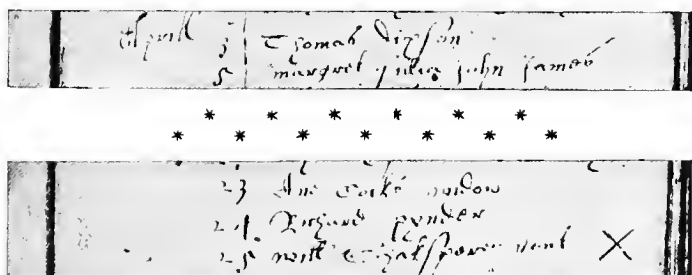 Aprill 3 Thomas Dixson
5 margret filia John James
23 Ane Cocks widow
24 Richard
25 will Shakspere gent X